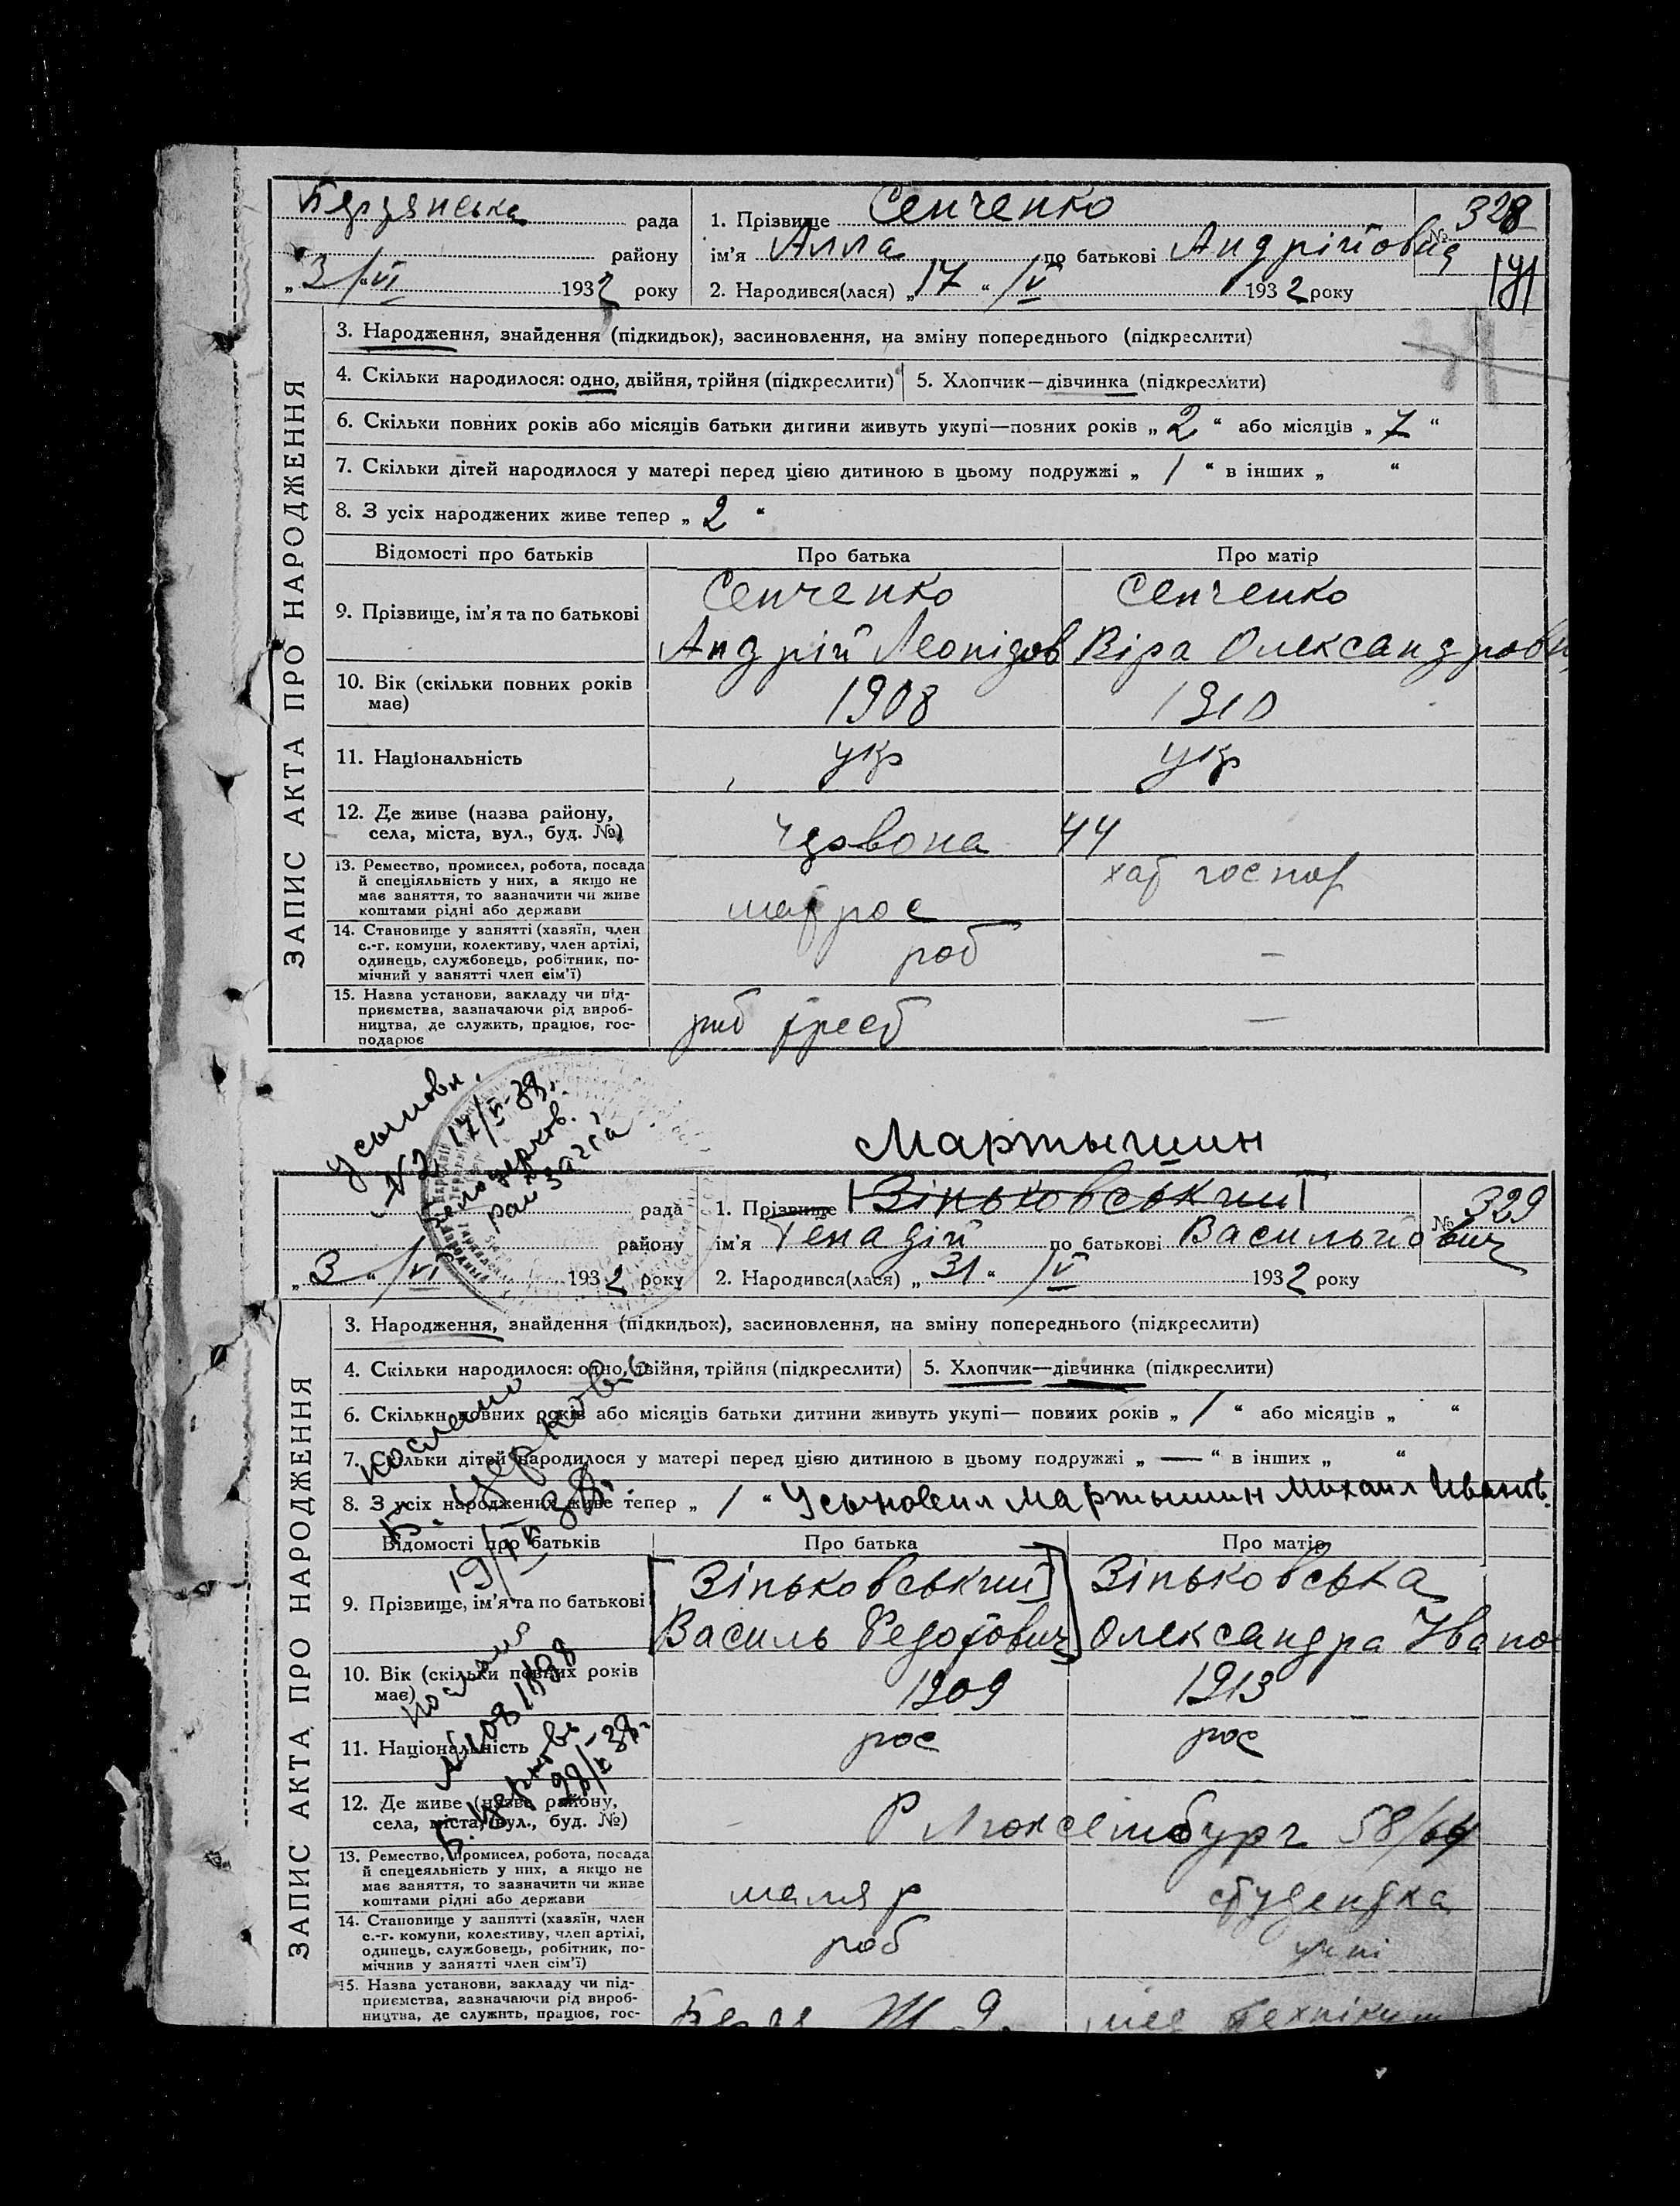 Бердянська рада
району
„ 3 “ /VI 1932 року
1. Прізвище Сенченко
ім’я Алла по батькові Андрійовна
2. Народився(лася) „ 17 “ /V 1932 року
№ 328
ЗАПИС АКТА ПРО НАРОДЖЕННЯ
3. Народження, знайдення (підкидьок), засиновлення, на зміну попереднього (підкреслити)
4. Скільки народилося: одно, двійня, трійня (підкреслити) 5. Хлопчик—дівчинка (підкреслити)
6. Скільки повних років або місяців батьки дитини живуть укупі—повних років „ 2 “ або місяців „ 7 “
7. Скільки дітей народилося у матері перед цією дитиною в цьому подружжі „ 1 “ в інших „ “
8. З усіх народжених живе тепер „ 2 “
Відомості про батьків Про батька Про матір
9. Прізвище, ім’я та по батькові
Сенченко Сенченко
Андрій Леонідов Віра Олександровн
10. Вік (скільки повних років
має) 1908 1910
11. Національність укр укр
12. Де живе (назва району,
села, міста, вул., буд. №) Червона 44
13. Ремество, промисел, робота, посада
й спеціяльність у них, а якщо не
має заняття, то зазначити чи живе
коштами рідні або держави
матрос хат господ
14. Становище у занятті (хазяїн, член
с.-г. комуни, колективу, член артілі,
одинець, службовець, робітник, по-
мічний у занятті член сім’ї)
роб —
15. Назва установи, закладу чи під-
приємства, зазначаючи рід вироб-
ництва, де служить, працює, гос-
подарює
риб трест —
Усыновл.
N 2 17/VI-38.
Белоцерков.
рай загса
Мартышин
рада
району
„ 3 “ /VI 1932 року
1. Прізвище Зіньковський
ім’я Генадій по батькові Васильйович
2. Народився(лася) „ 31 “ /V 1932 року
№ 329
ЗАПИС АКТА ПРО НАРОДЖЕННЯ
3. Народження, знайдення (підкидьок), засиновлення, на зміну попереднього (підкреслити)
4. Скільки народилося: одно, двійня, трійня (підкреслити) 5. Хлопчик—дівчинка (підкреслити)
6. Скільки повних років або місяців батьки дитини живуть укупі— повних років „ 1 “ або місяців „ “
7. Скільки дітей народилося у матері перед цією дитиною в цьому подружжі „ — “ в інших „ “
8. З усіх народжених живе тепер „ 1 “ Усыновил Мартышин Михаил Иванов.
послано
Б. Церковь
Відомості про батьків Про батька Про матір
9. Прізвище, ім’я та по батькові
Зіньковський Зіньковська
Василь Федотович Олександра Івано
10. Вік (скільки повних років
має) 1909 1913
11. Національність рос рос
послано
Б. Церковь
12. Де живе (назва району,
села, міста, вул., буд. №) Р Люксембург 58/64
13. Ремество, промисел, робота, посада
й спецеяльність у них, а якщо не
має заняття, то зазначити чи живе
коштами рідні або держави
маляр студентка
14. Становище у занятті (хазяїн, член
с.-г. комуни, колективу, член артілі,
одинець, службовець, робітник, по-
мічнив у занятті член сім’ї)
роб учні
15. Назва установи, закладу чи під-
приємства, зазначаючи рід вироб-
ництва, де служить, працює, гос-